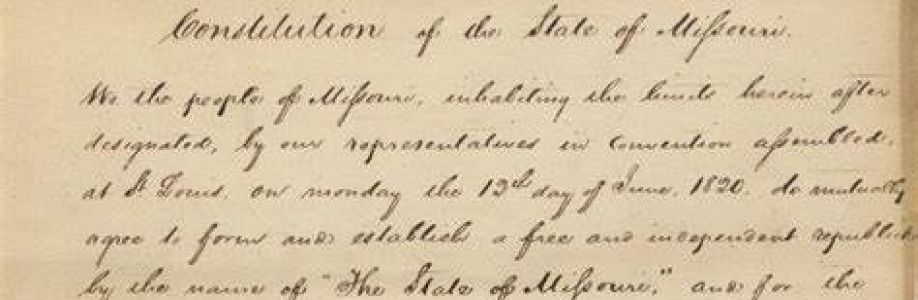 Constitution of the State of Missouri.
We the people of Missouri, inhabiting the limits herein after
designated, by our representatives in Convention assembled,
at St Louis, on monday the 12th day of June, 1820. do mutually
agree to form and establish a free and independent republick
by the name of "The State of Missouri," and for the